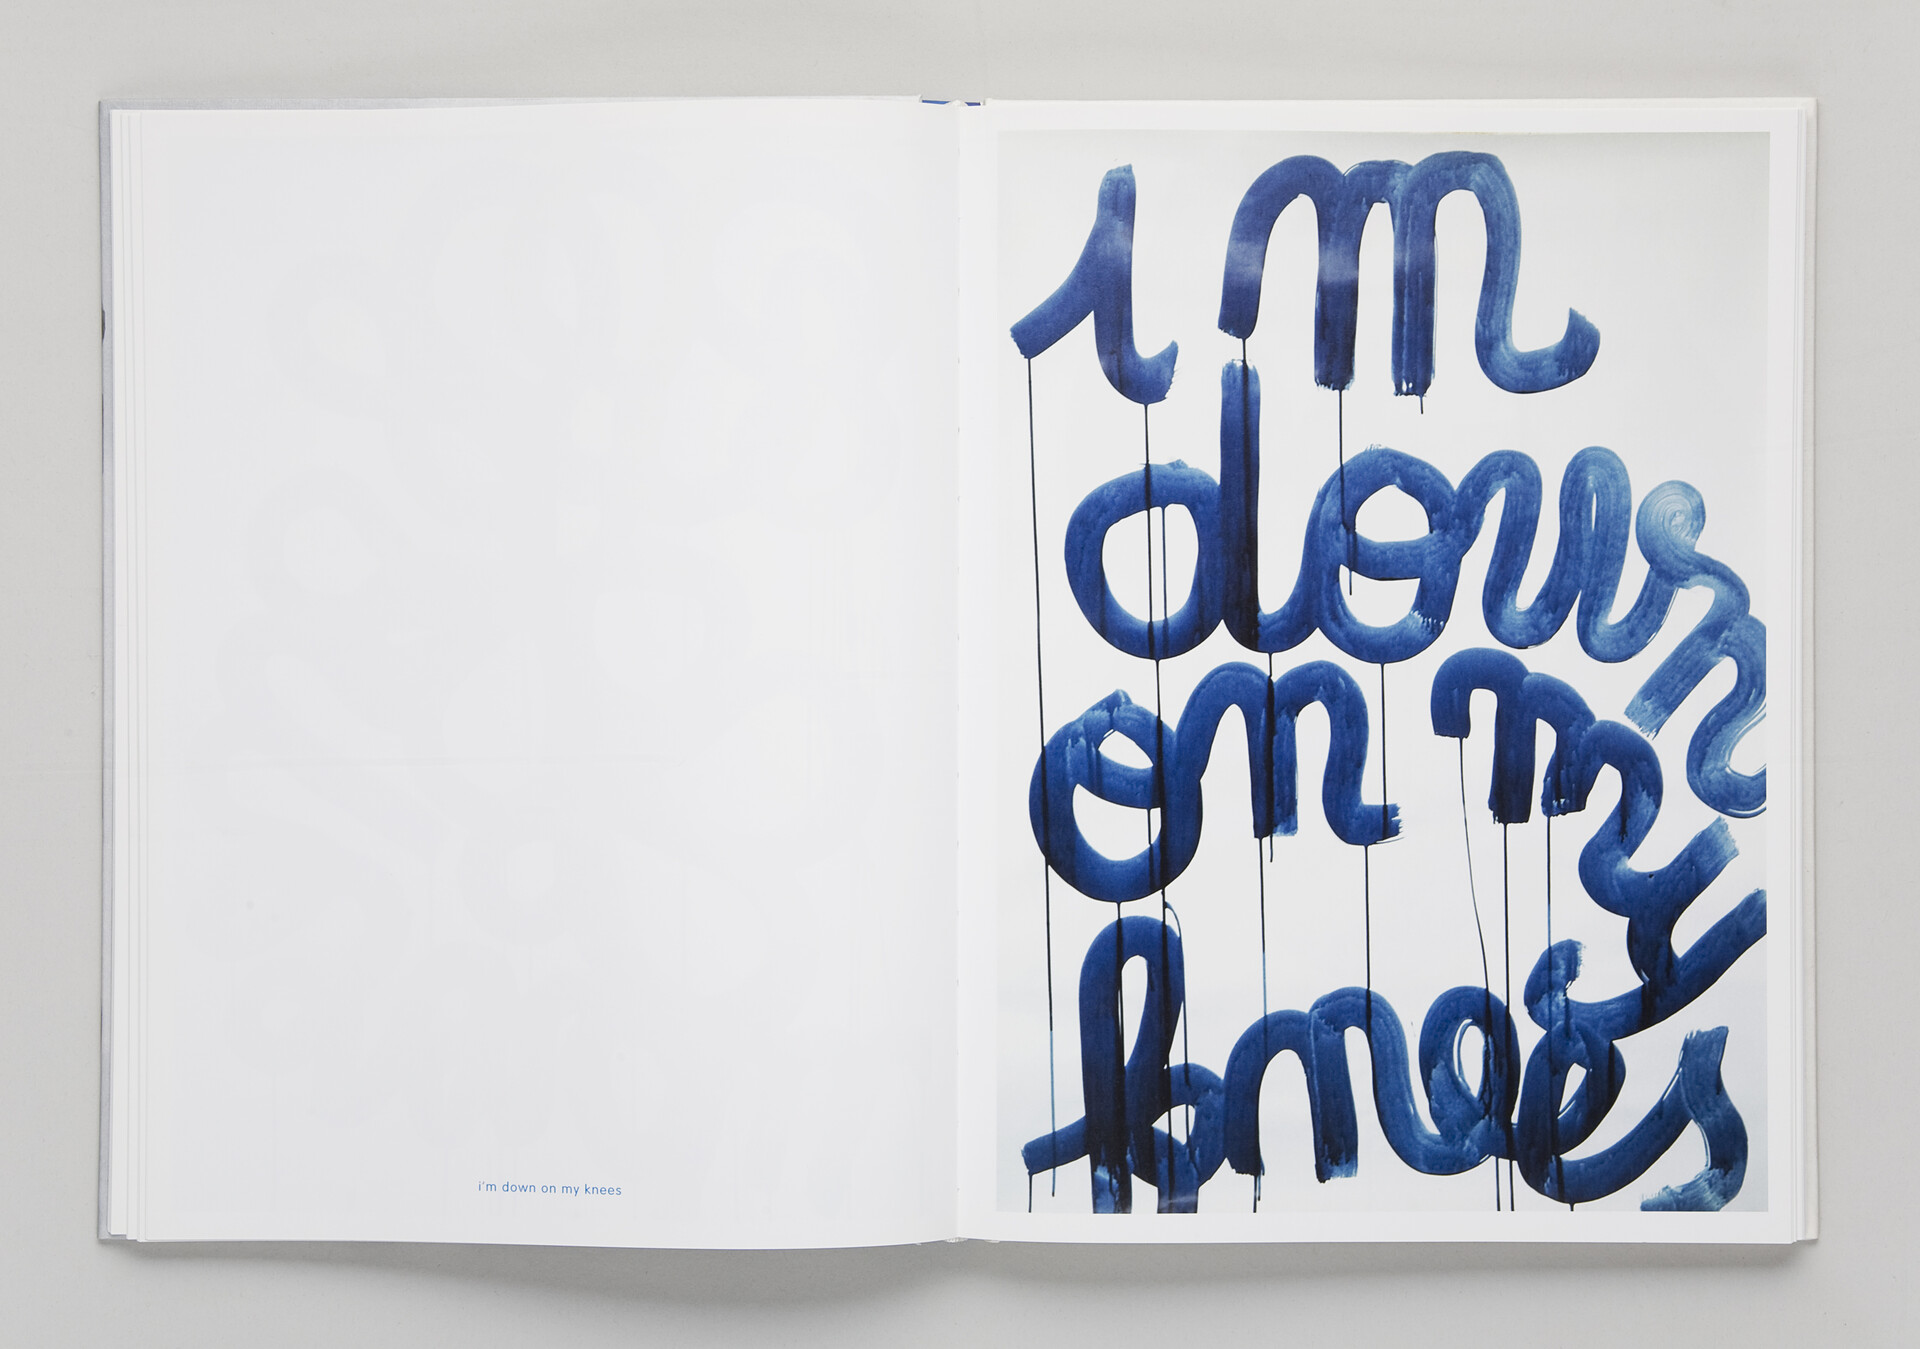 i'm down on my knees
im
down
on my
knees